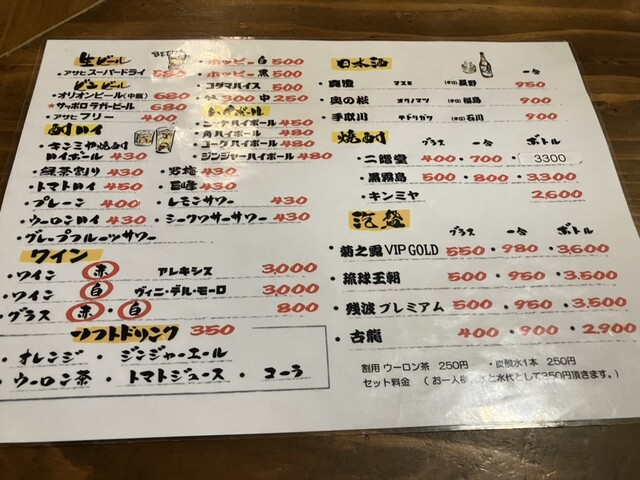 生ビール
・アサヒスーパードライ 580
ビンビール
・オリオンビール(中瓶) 680
★サッポロラガービール 680
・アサヒフリー 400
酎ハイ
・キンミヤ焼酎
ハイボール 430
・緑茶割り 430
・トマトハイ 450
・プレーン 400
・ウーロンハイ 430
・グレープフルーツサワー
BEER
・ホッピー白 500
・ホッピー黒 500
・コダマバイス 500
300 中 250
ハイボール
・ニッカハイボール 450
・角ハイボール 480
・コークハイボール 480
・ジンジャーハイボール 480
・男梅 430
・巨峰 430
・レモンサワー 430
・シークワサーサワー 430
ワイン
・ワイン 赤 アレキシス 3,000
・ワイン 白 ヴィニ・デル・モーロ 3,000
・グラス 赤・白 800
ソフトドリンク 350
・オレンジ ・ジンジャーエール
・ウーロン茶 ・トマトジュース ・コーラ
日本酒
一合
・真澄 マスミ (辛口)長野 950
・奥の松 オクノマツ (辛口)福島 900
・手取川 テドリガワ (辛口)石川 900
焼酎 グラス 一合 ボトル
・二階堂 400・700・3300
・黒霧島 500・800・3300
・キンミヤ 2,600
泡盛 グラス 一合 ボトル
・菊之露VIP GOLD 550・980・3,600
・琉球王朝 500・950・3,500
・残波プレミアム 500・950・3,500
・古龍 400・900・2,900
割用 ウーロン茶 250円 ・炭酸水1本 250円
セット料金 (お一人様 と水代として350円頂きます。)